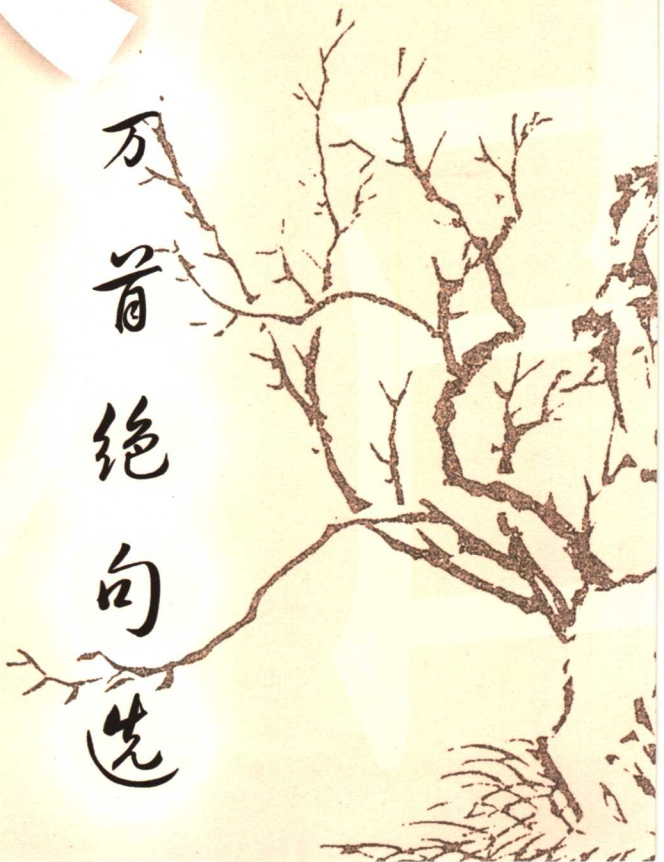 万首绝句选